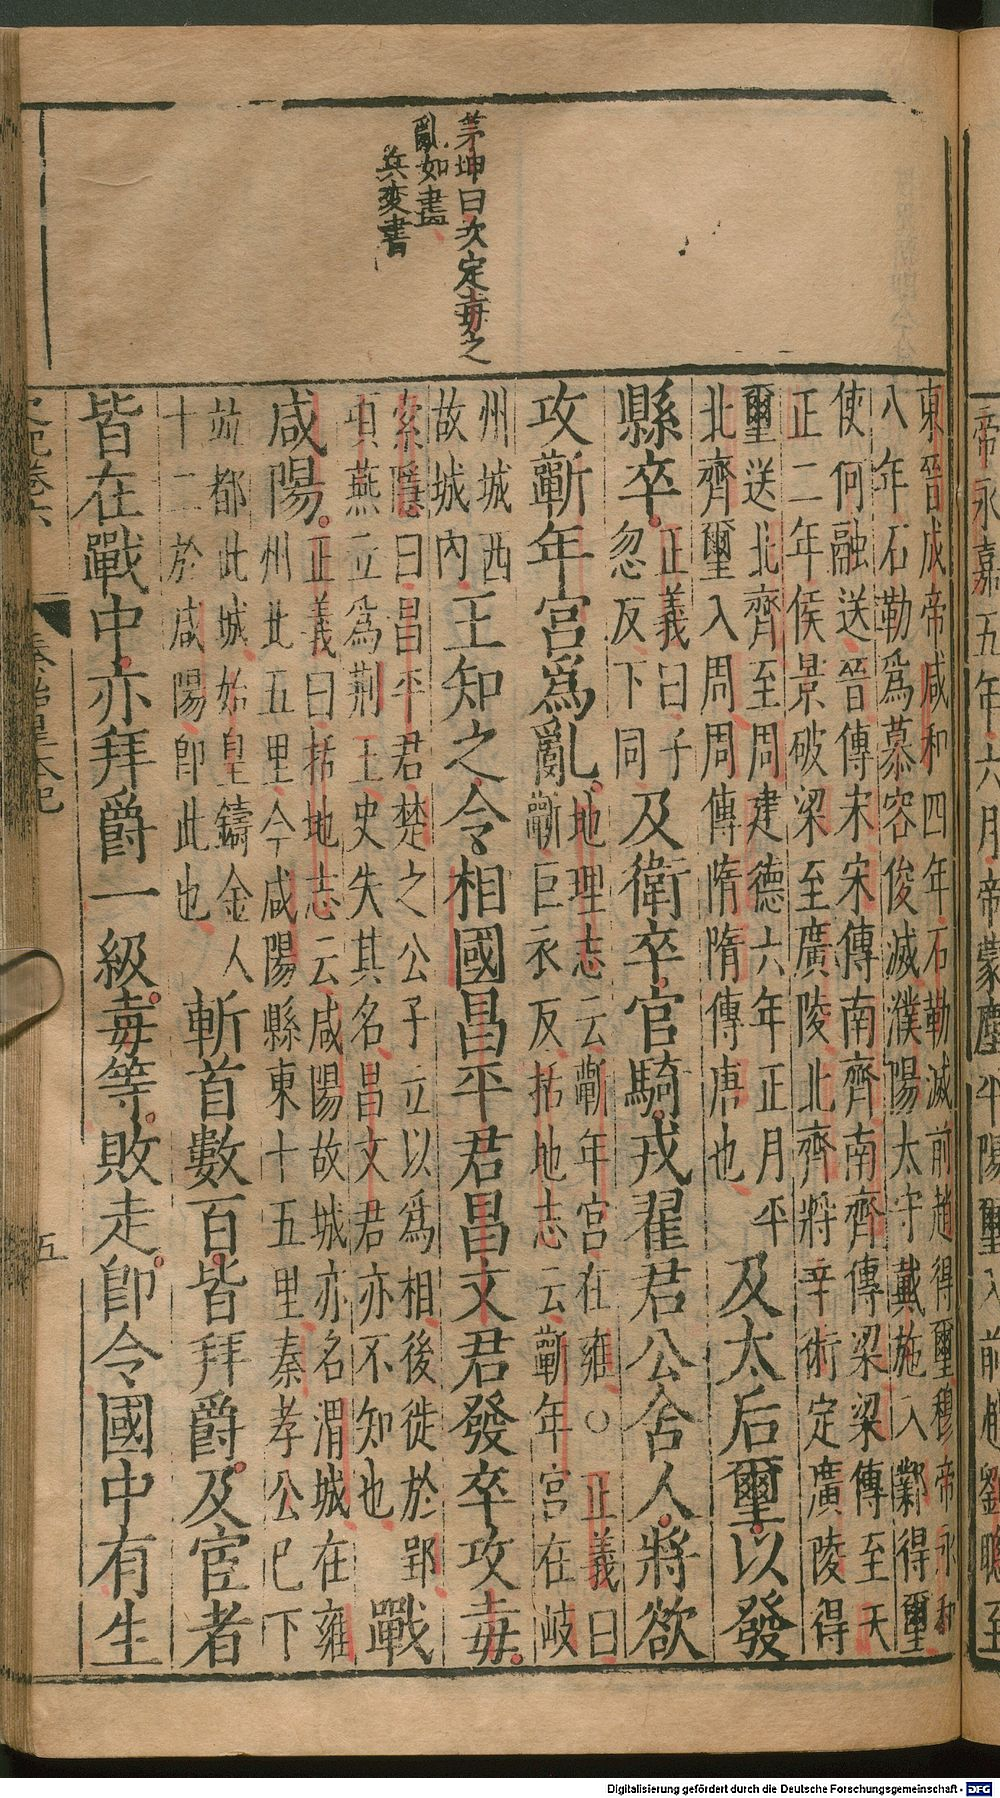 帝永嘉五年六月帝蒙塵平陽璽入前趙劉聰至
茅坤曰次定毐之
亂如畫
兵变書
東晉成帝咸和四年石勒滅前趙得璽穆帝永和
八年石勒爲慕容俊滅濮陽太守戴施入鄴得璽
使何融送晉傳宋宋傳南齊南齊傳梁梁傳至天
正二年侯景破梁至廣陵北齊將辛術定廣陵得
璽送北齊至周建德六年正月平
北齊璽入周周傳隋隋傳唐也
及太后璽以發
縣卒
正義曰子
忽反下同
及衛卒官騎戎翟君公舍人將欲
攻蘄年宮爲亂
地理志云蘄年宮在雍○正義曰
蘄巨衣反括地志云蘄年宮在岐
州城西
故城內
王知之令相國昌平君昌文君發卒攻毐
索隱曰昌平君楚之公子立以爲相後徙於郢
項燕立爲荆王史失其名昌文君亦不知也
戰
咸陽
正義曰括地志云咸陽故城亦名渭城在雍
州北五里今咸陽縣東十五里秦孝公已下
竝都此城始皇鑄金人
十二於咸陽卽此也
斬首數百皆拜爵及宦者
皆在戰中亦拜爵一級毐等敗走卽令國中有生
史記卷六 秦始皇本紀 五
Digitalisierung gefördert durch die Deutsche Forschungsgemeinschaft - DFG